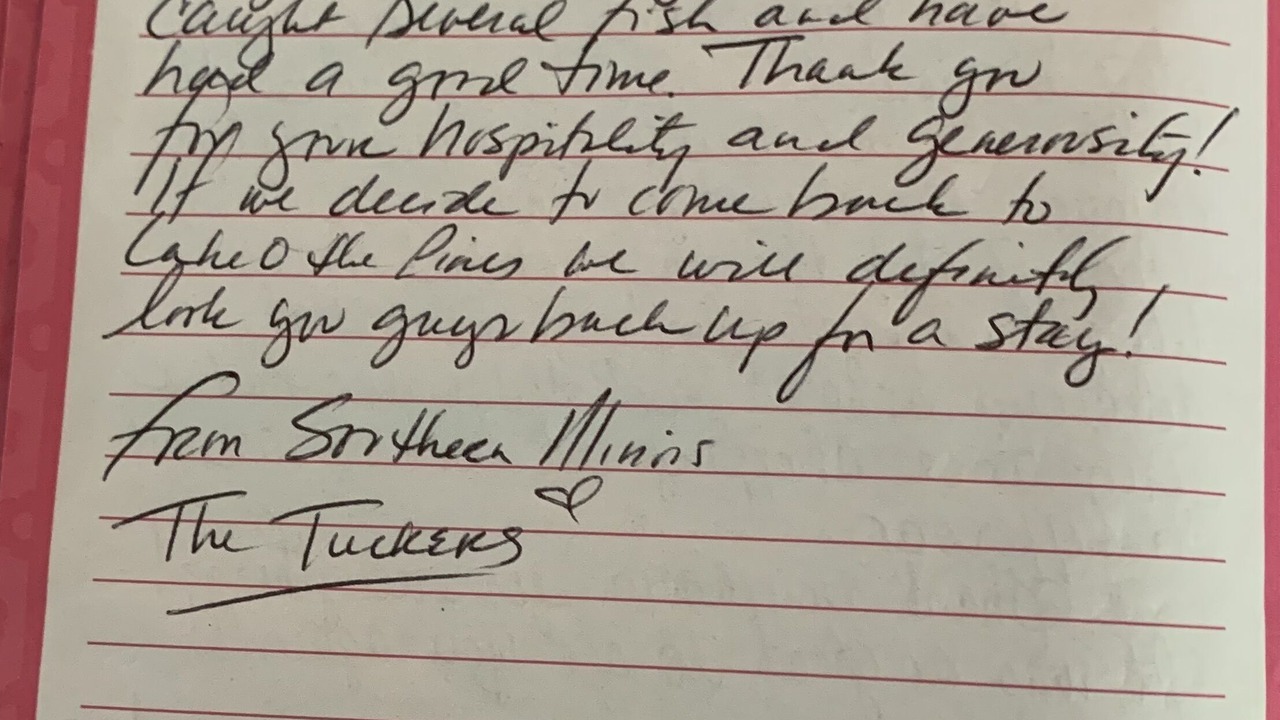 Caught several fish and have
had a good time. Thank you
for your hospitality and generosity!
If we decide to come back to
Lake O the Pines we will definitely
look you guys back up for a stay!
from Southern Illinois
The Tuckers